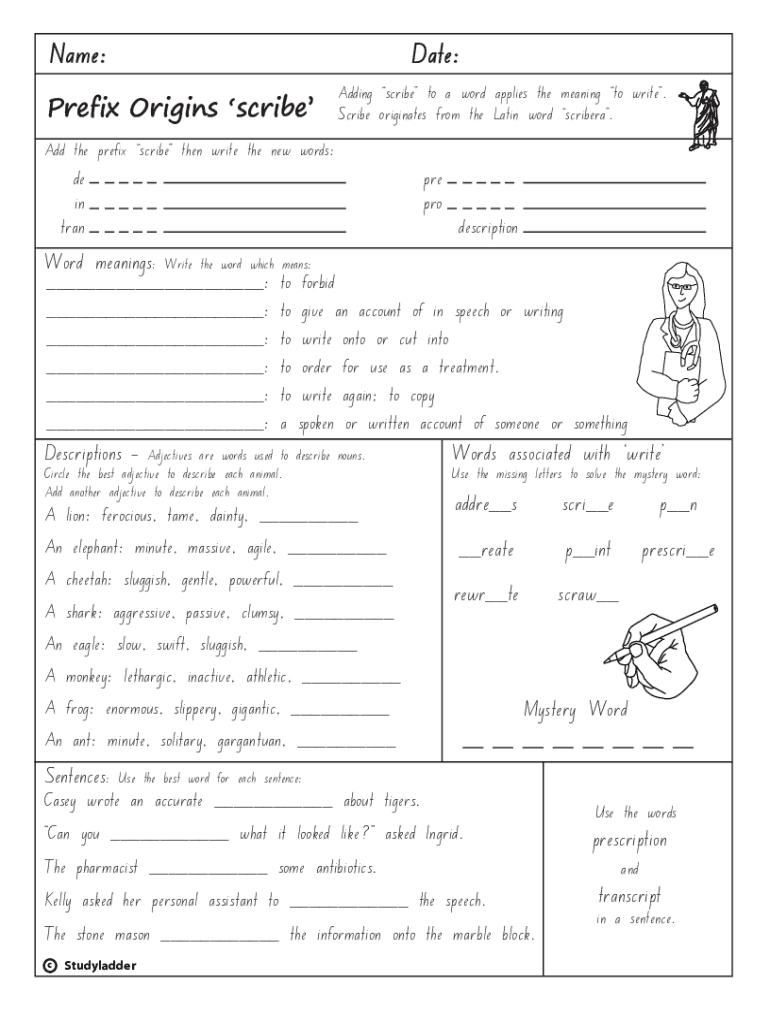 Name: Date:
Prefix Origins ‘scribe’
Adding “scribe” to a word applies the meaning “to write”.
Scribe originates from the Latin word “scribera”.
Add the prefix “scribe” then write the new words:
de _ _ _ _ _ ____________ pre _ _ _ _ _ ____________
in _ _ _ _ _ ____________ pro _ _ _ _ _ ____________
tran _ _ _ _ _ ____________ description ____________
Word meanings: Write the word which means:
____________: to forbid
____________: to give an account of in speech or writing
____________: to write onto or cut into
____________: to order for use as a treatment.
____________: to write again; to copy
____________: a spoken or written account of someone or something
Descriptions – Adjectives are words used to describe nouns.
Circle the best adjective to describe each animal.
Add another adjective to describe each animal.
A lion: ferocious, tame, dainty, __________
An elephant: minute, massive, agile, __________
A cheetah: sluggish, gentle, powerful, __________
A shark: aggressive, passive, clumsy, __________
An eagle: slow, swift, sluggish, __________
A monkey: lethargic, inactive, athletic, __________
A frog: enormous, slippery, gigantic, __________
An ant: minute, solitary, gargantuan, __________
Words associated with ‘write’
Use the missing letters to solve the mystery word:
addre__s scri__e p__n
__reate p__int prescri__e
rewr__te scraw__
Mystery Word
__ __ __ __ __ __ __ __
Sentences: Use the best word for each sentence:
Casey wrote an accurate ____________ about tigers.
“Can you ____________ what it looked like?” asked Ingrid.
The pharmacist ____________ some antibiotics.
Kelly asked her personal assistant to ____________ the speech.
The stone mason ____________ the information onto the marble block.
Use the words
prescription
and
transcript
in a sentence.
© Studyladder